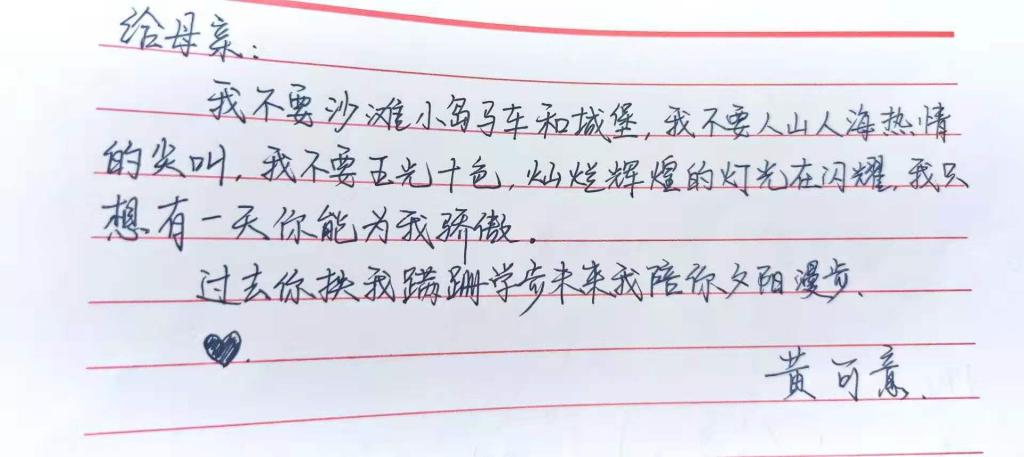 给母亲：
我不要沙滩小岛马车和城堡，我不要人山人海热情
的尖叫，我不要五光十色，灿烂辉煌的灯光在闪耀，我只
想有一天你能为我骄傲。
过去你扶我蹒跚学步未来我陪你夕阳漫步．
♥．
黄可意．